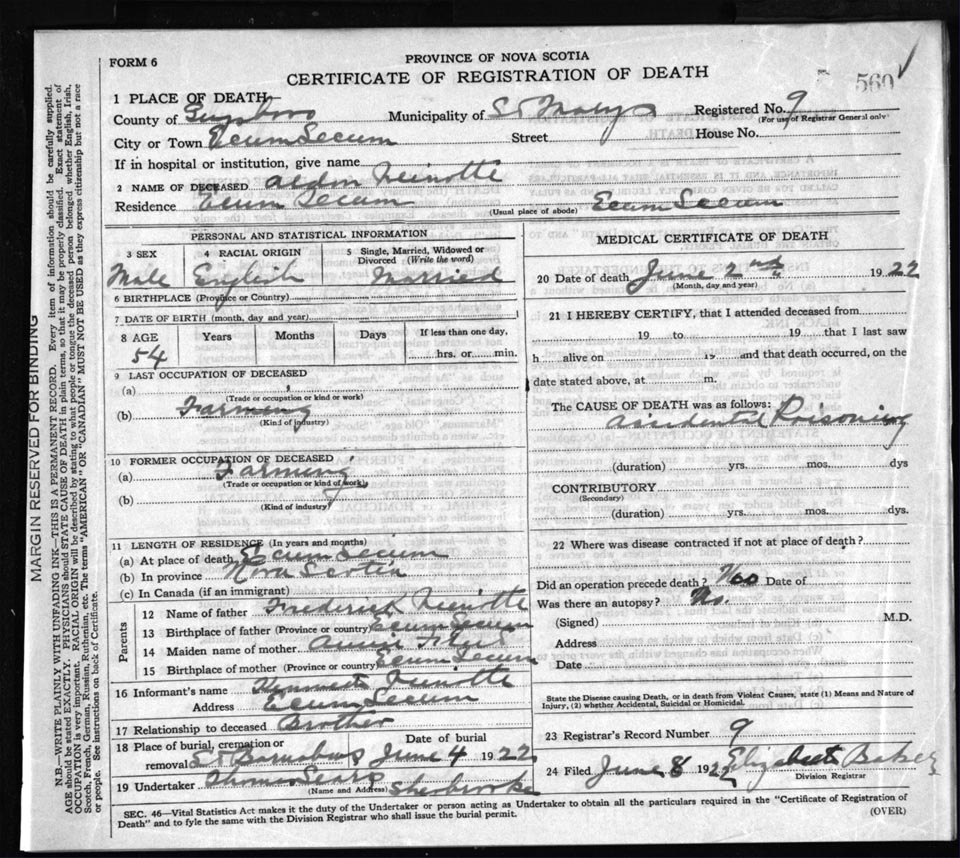 FORM 6
PROVINCE OF NOVA SCOTIA
CERTIFICATE OF REGISTRATION OF DEATH
560
1 PLACE OF DEATH
County of Guysboro Municipality of St Marys Registered No. 9
(For use of Registrar General only)
City or Town Ecum Secum Street House No.
If in hospital or institution, give name
2 NAME OF DECEASED Aldon
Residence Ecum Secum (Usual place of abode) Ecum Secum
PERSONAL AND STATISTICAL INFORMATION
3 SEX 4 RACIAL ORIGIN 5 Single, Married, Widowed or Divorced (Write the word)
Male English Married
6 BIRTHPLACE (Province or Country)
7 DATE OF BIRTH (month, day and year)
8 AGE Years Months Days If less than one day,
54 hrs. or min.
9 LAST OCCUPATION OF DECEASED
(a)
(Trade or occupation or kind or work)
(b) Farming
(Kind of industry)
10 FORMER OCCUPATION OF DECEASED
(a) Farming
(Trade or occupation or kind of work)
(b)
(Kind of industry)
11 LENGTH OF RESIDENCE (In years and months)
(a) At place of death Ecum Secum
(b) In province Nova Scotia
(c) In Canada (if an immigrant)
Parents
12 Name of father Frederick
13 Birthplace of father (Province or country) Ecum Secum
14 Maiden name of mother Annie
15 Birthplace of mother (Province or country) Ecum Secum
16 Informant's name Kenneth
Address Ecum Secum
17 Relationship to deceased Brother
18 Place of burial, cremation or removal St Barnabas Date of burial June 4 1922
19 Undertaker Thomas Sears Sherbrooke
(Name and Address)
MEDICAL CERTIFICATE OF DEATH
20 Date of death June 2nd 1922
(Month, day and year)
21 I HEREBY CERTIFY, that I attended deceased from
19 to 19 that I last saw
h alive on 19 and that death occurred, on the
date stated above, at m.
The CAUSE OF DEATH was as follows:
Accidental Poisoning
(duration) yrs. mos. dys
CONTRIBUTORY
(Secondary)
(duration) yrs. mos. dys.
22 Where was disease contracted if not at place of death?
Did an operation precede death? No Date of
Was there an autopsy? No.
(Signed) M.D.
Address
Date
State the Disease causing Death, or in death from Violent Causes, state (1) Means and Nature of
Injury, (2) whether Accidental, Suicidal or Homicidal.
23 Registrar's Record Number 9
24 Filed June 8 1922 Elizabeth Baker
Division Registrar
SEC. 46—Vital Statistics Act makes it the duty of the Undertaker or person acting as Undertaker to obtain all the particulars required in the "Certificate of Registration of
Death" and to fyle the same with the Division Registrar who shall issue the burial permit.
(OVER)
MARGIN RESERVED FOR BINDING
N.B.—WRITE PLAINLY WITH UNFADING INK—THIS IS A PERMANENT RECORD. Every item of information should be carefully supplied.
AGE should be stated EXACTLY. PHYSICIANS should STATE CAUSE OF DEATH in plain terms, so that it may be properly classified. Exact statement of
OCCUPATION is very important. RACIAL ORIGIN will be described by stating to what people or tongue the deceased person belonged whether English, Irish,
Scotch, French, German, Russian, Ruthenian, etc. The terms "AMERICAN" OR "CANADIAN" MUST NOT BE USED as they express citizenship but not a race
or people. See instructions on back of Certificate.